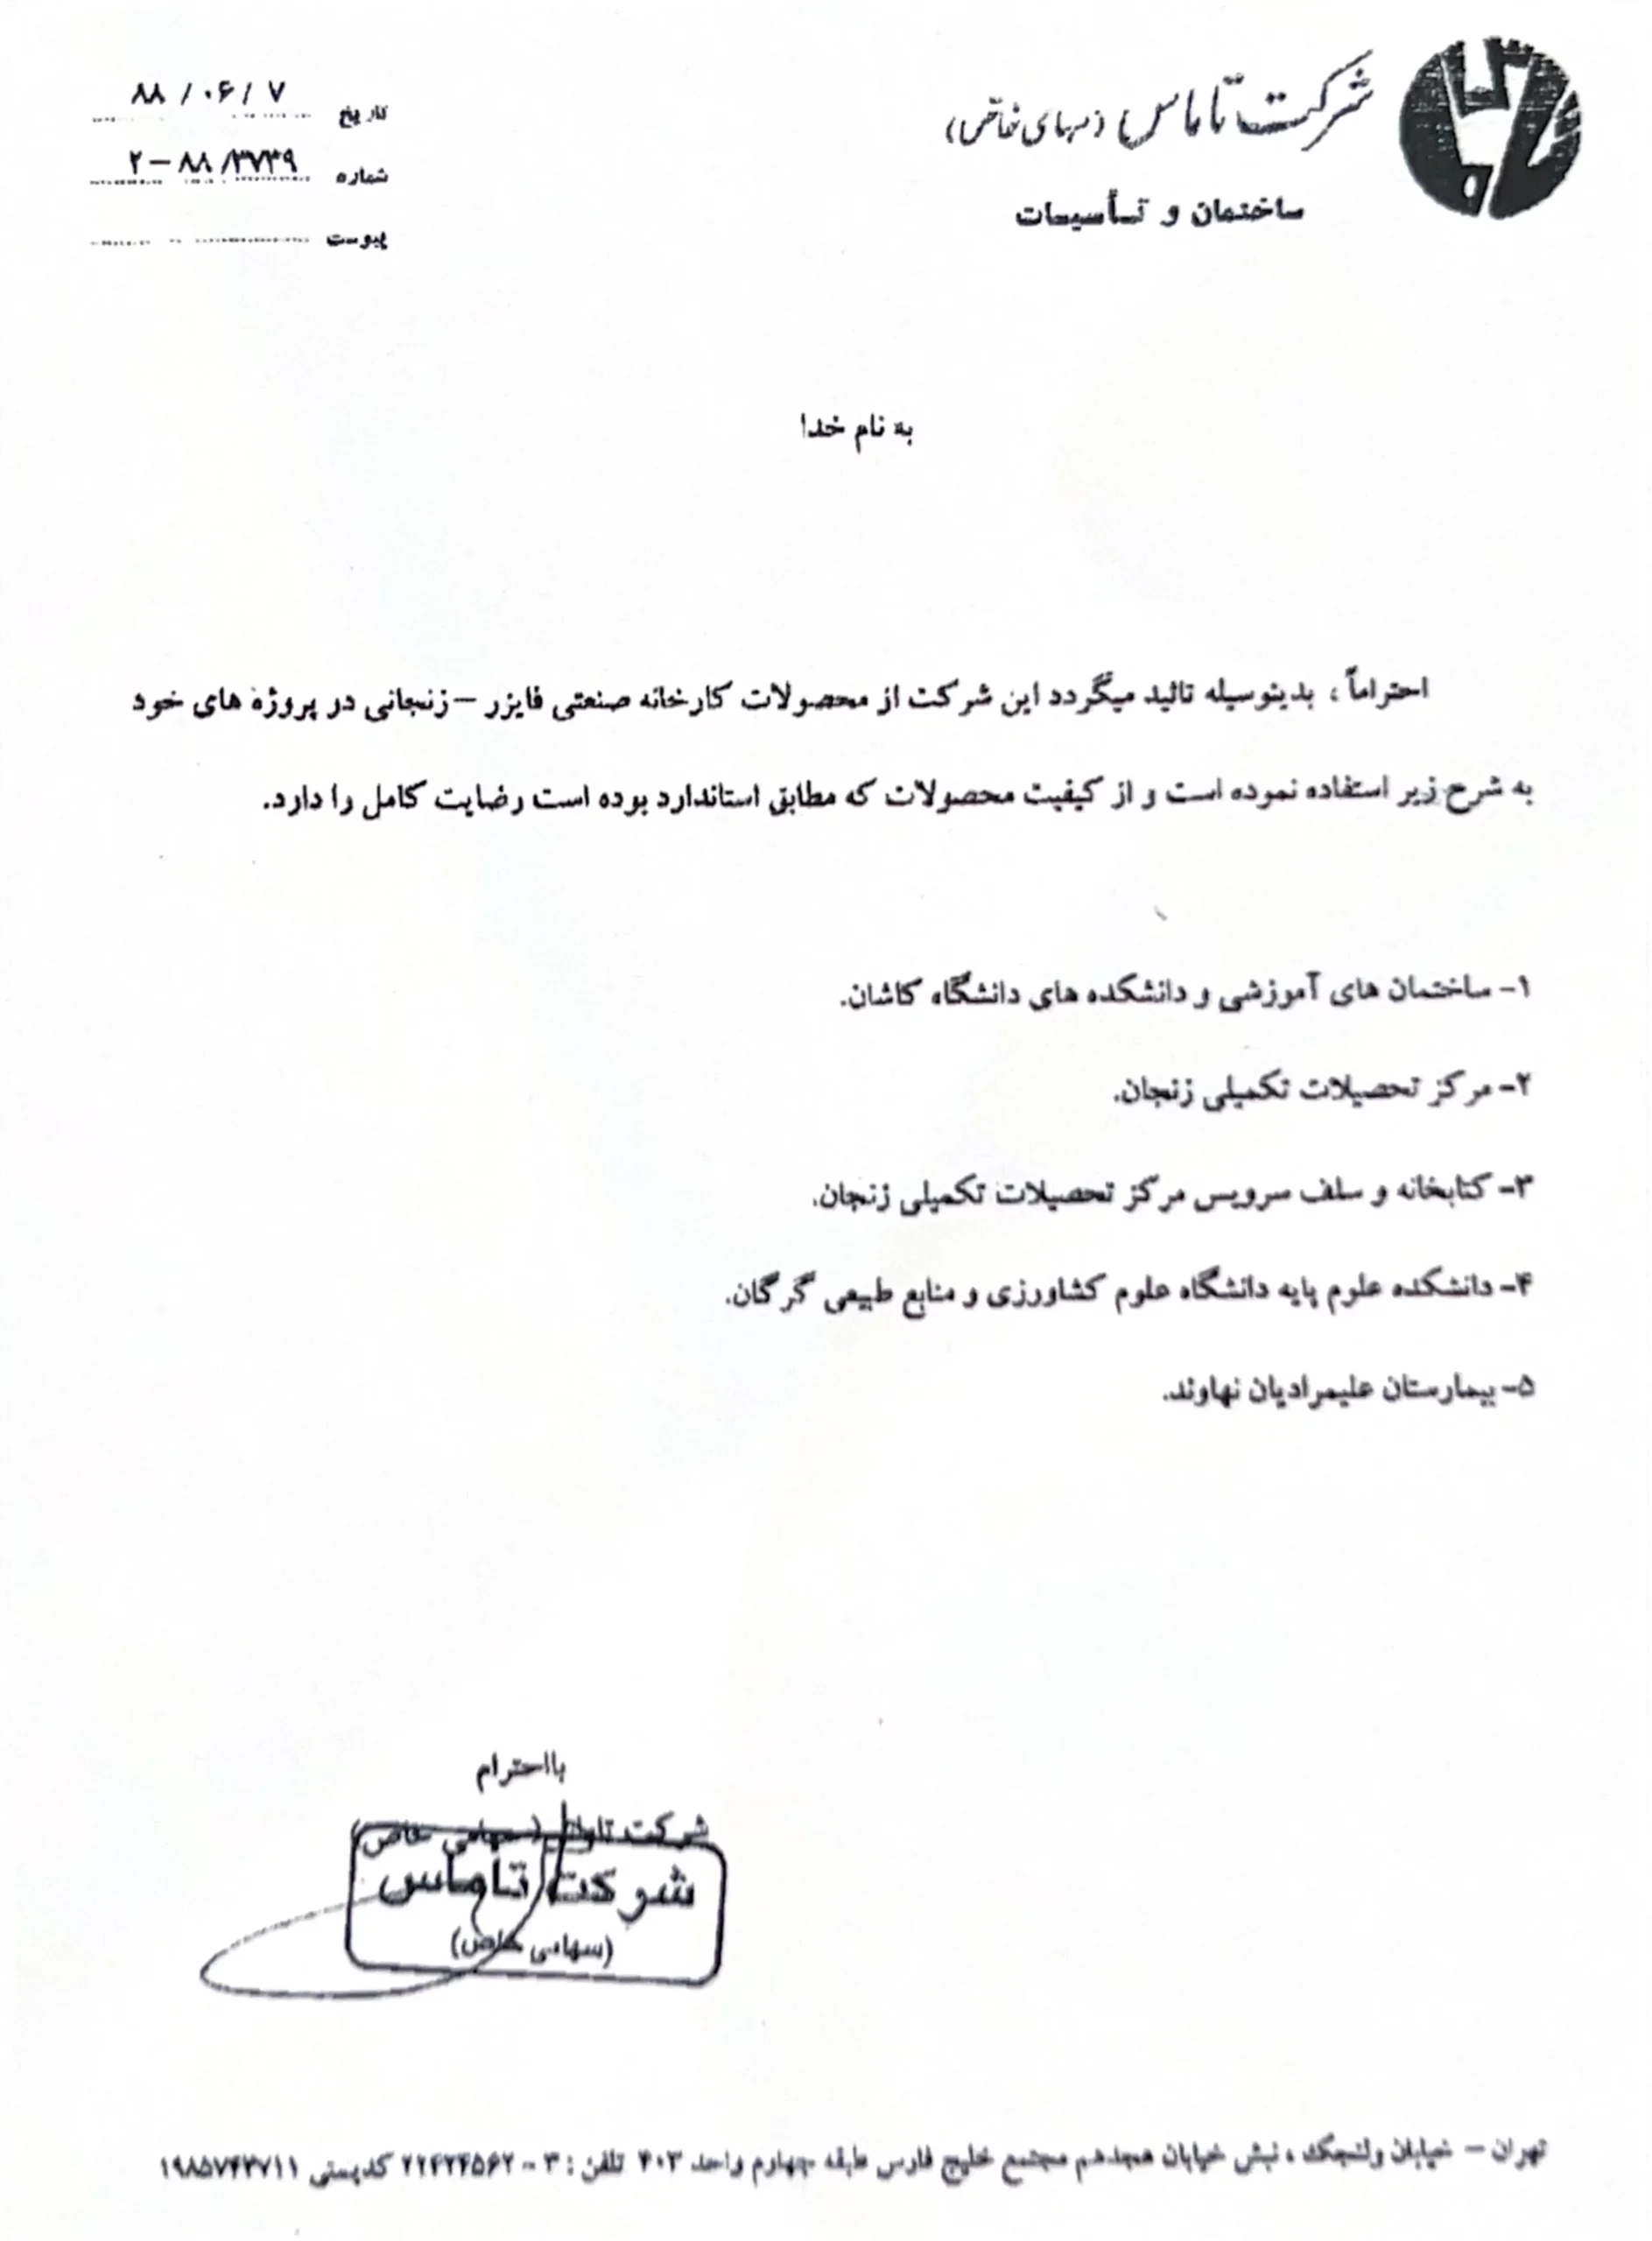 شرکت تاماس (سهامی خاص)
ساختمان و تأسیسات
تاریخ ۸۸ / ۰۶ / ۷
شماره ۲ – ۸۸ / ۳۷۳۹
پیوست
به نام خدا
احتراماً ، بدینوسیله تائید میگردد این شرکت از محصولات کارخانه صنعتی فایزر – زنجانی در پروژه های خود
به شرح زیر استفاده نموده است و از کیفیت محصولات که مطابق استاندارد بوده است رضایت کامل را دارد.
۱- ساختمان های آموزشی و دانشکده های دانشگاه کاشان.
۲- مرکز تحصیلات تکمیلی زنجان.
۳- کتابخانه و سلف سرویس مرکز تحصیلات تکمیلی زنجان.
۴- دانشکده علوم پایه دانشگاه علوم کشاورزی و منابع طبیعی گرگان.
۵- بیمارستان علیمرادیان نهاوند.
بااحترام
شرکت تاماس (سهامی خاص)
شرکت تاماس
(سهامی خاص)
تهران – خیابان ولنجک ، نبش خیابان هجدهم مجتمع خلیج فارس طبقه چهارم واحد ۴۰۳ تلفن : ۳ - کدپستی